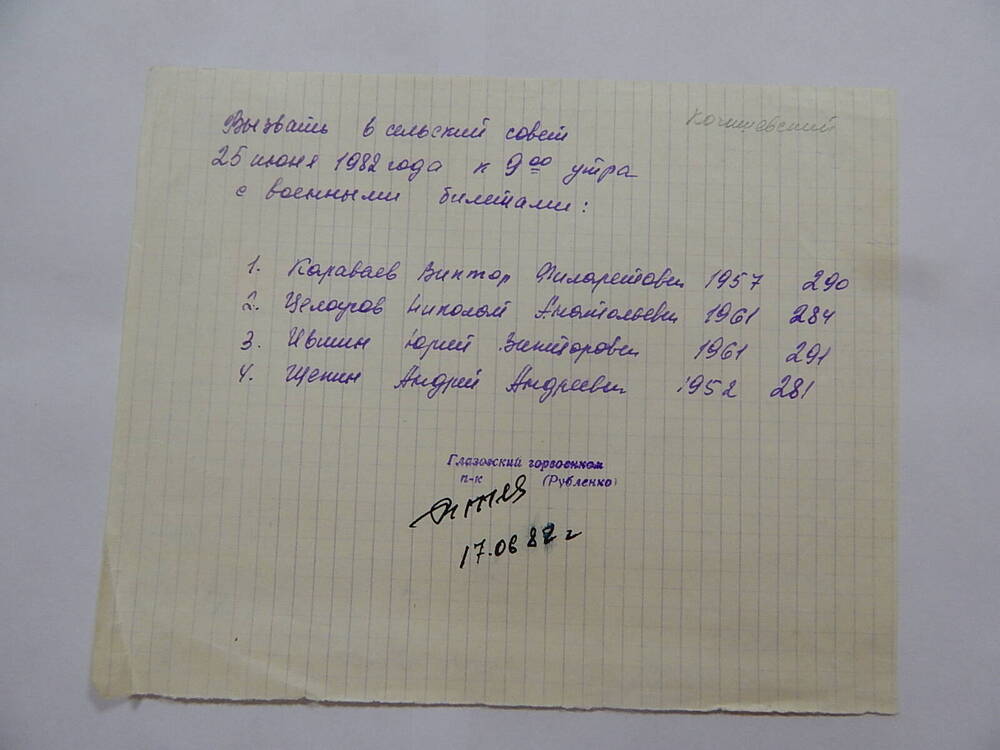 Кочишевский
Вызвать в сельский совет
25 июня 1982 года к 9 00 утра
с военными билетами:
1. Караваев Виктор Филаретович 1957 290
2. Целоусов Николай Анатольевич 1961 284
3. Ившин Юрий Викторович 1961 291
4. Щенин Андрей Андреевич 1952 281
Глазовский горвоенком
п-к (Рубленко)
17.06 82 г